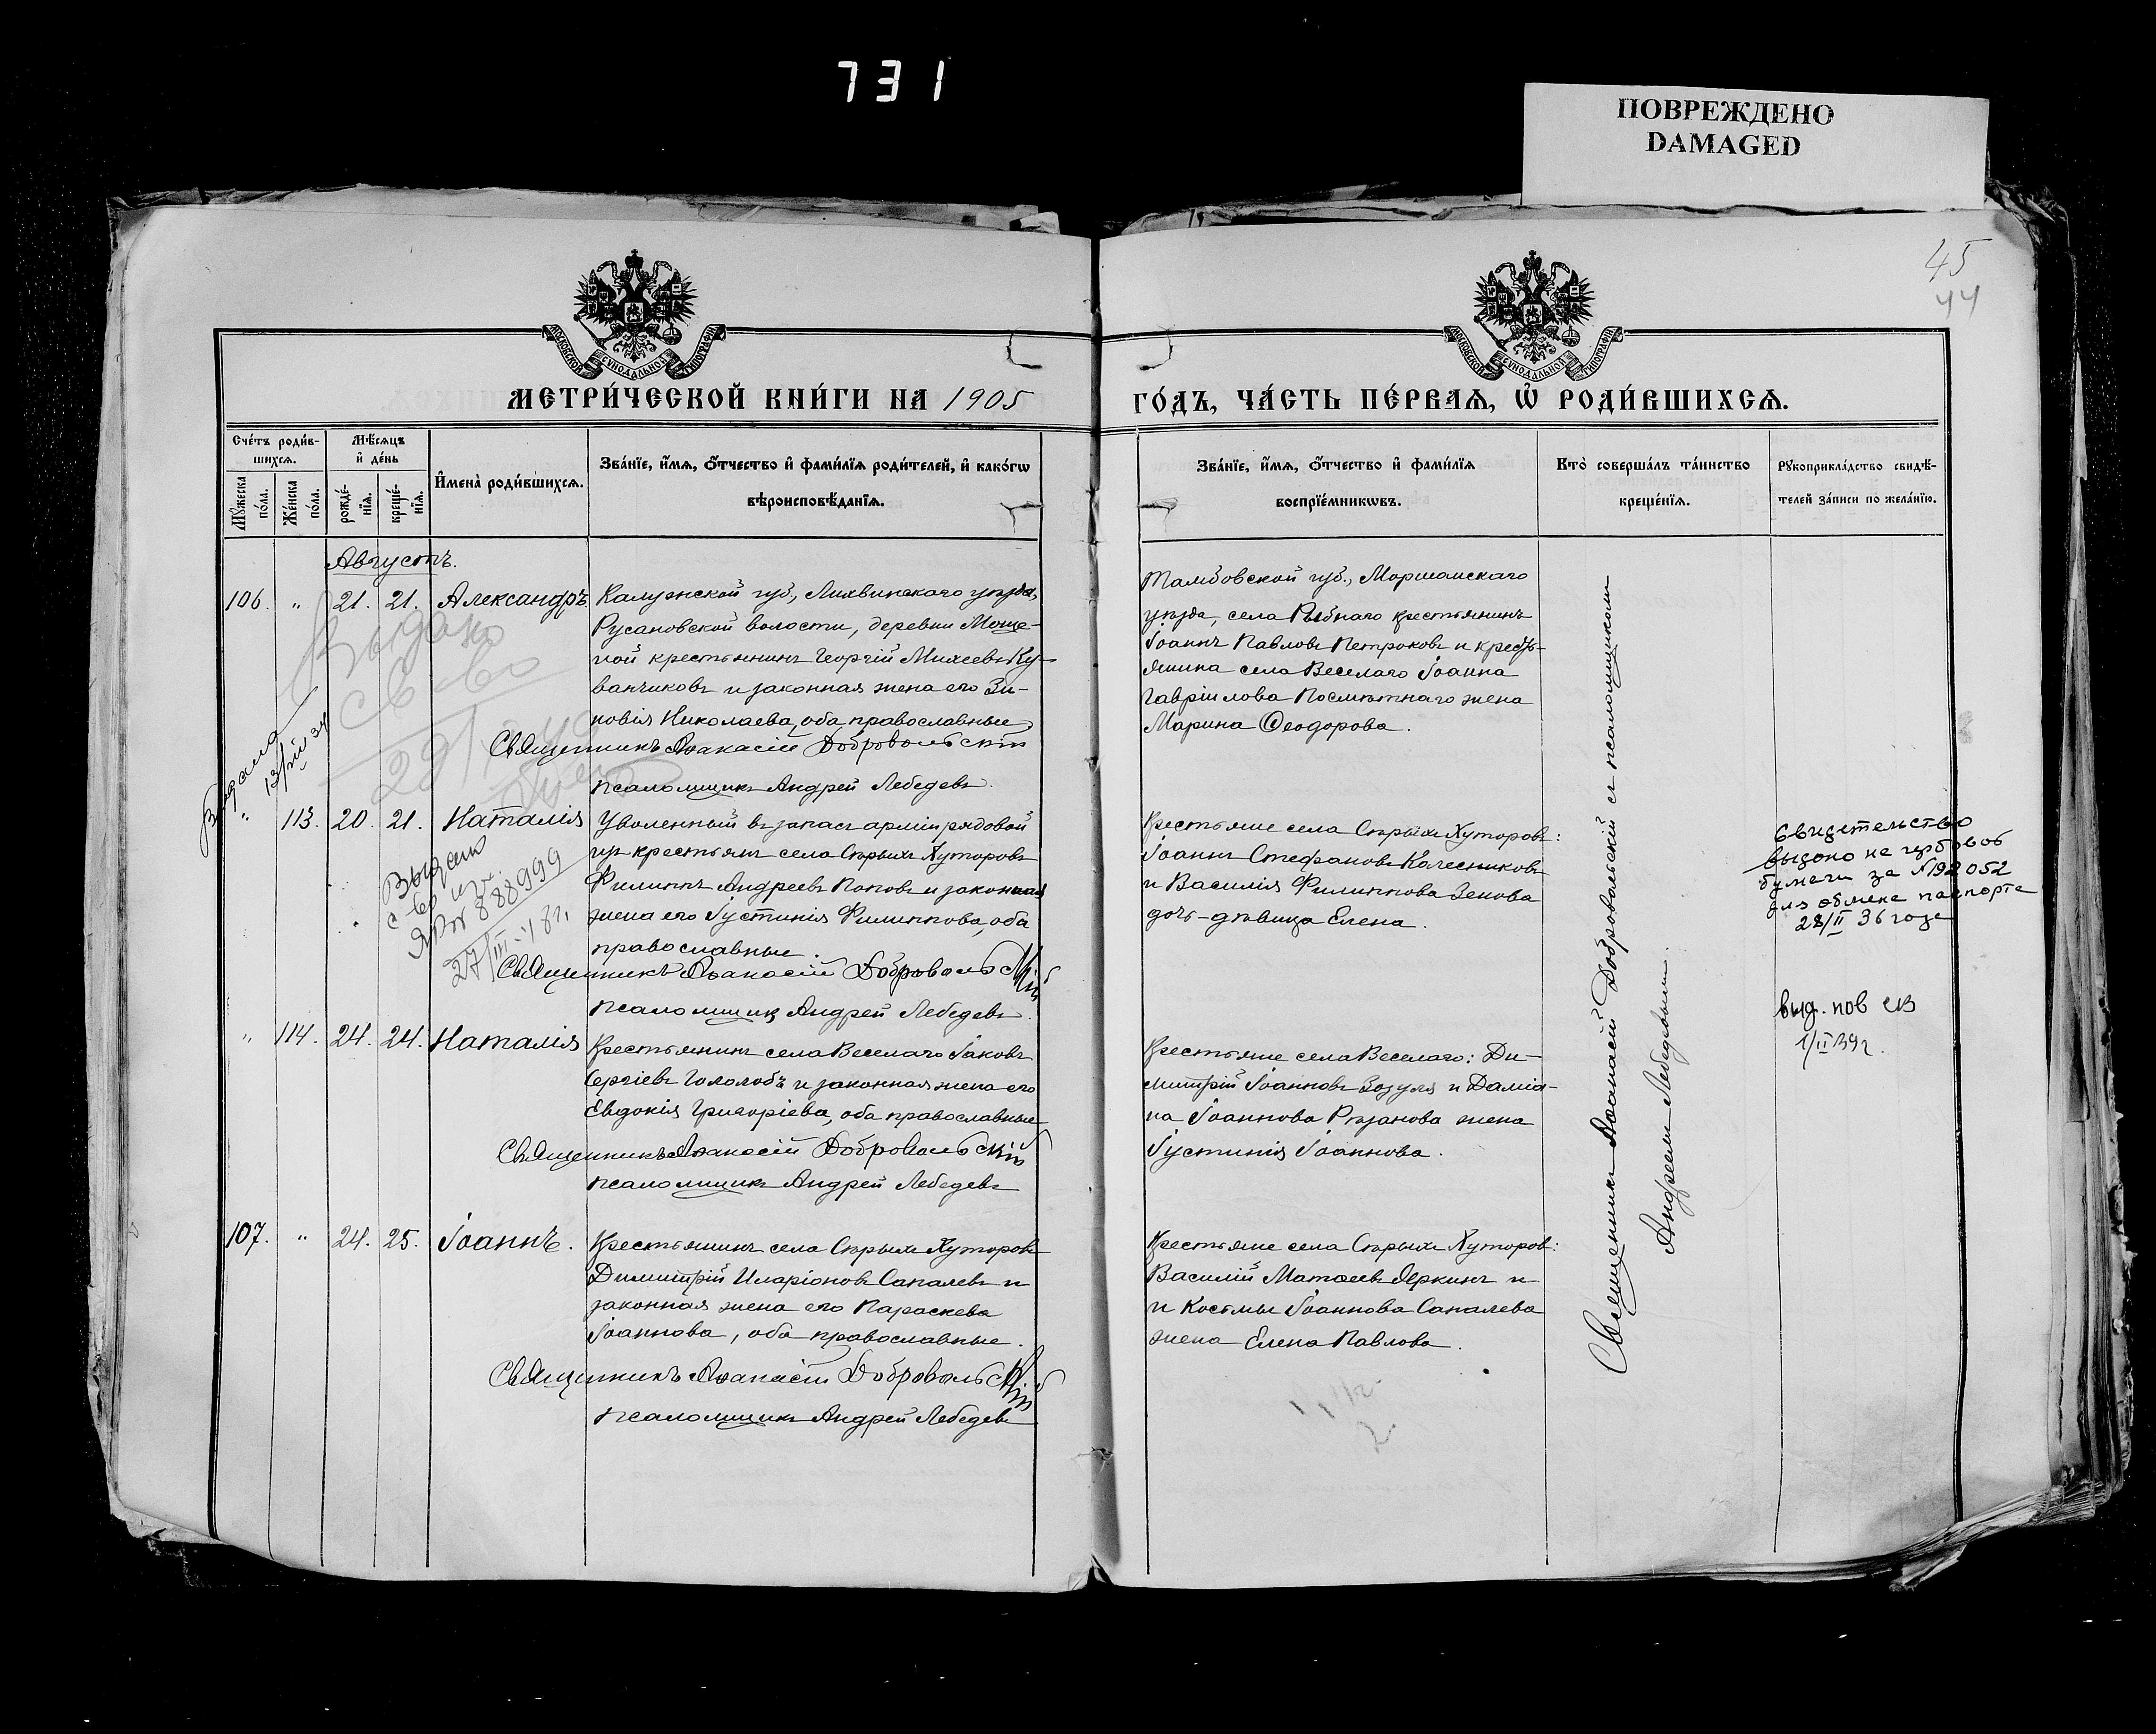 731
ПОВРЕЖДЕНО
DAMAGED
45
44
МОСКОВСКОЙ СѴНОДАЛЬНОЙ ТИПОГРАФІИ
МОСКОВСКОЙ СѴНОДАЛЬНОЙ ТИПОГРАФІИ
МЕТРИ́ЧЕСКОЙ КНИ́ГИ НА 1905
ГО́ДЪ, ЧА́СТЬ ПЕ́РВАѦ, Ѡ҆ РОДИ́ВШИХСѦ.
Сче́тъ роди́в-
шихсѧ.
Мѣ́сѧцъ
и҆ де́нь
Мꙋ́жеска
по́ла.
Же́нска
по́ла.
рожде́-
нїѧ.
креще́-
нїѧ.
И҆мена̀ роди́вшихсѧ.
Зва́нїе, и҆́мѧ, ѻ҆́тчество и҆ фами́лїѧ роди́телей, и҆ како́гѡ
вѣроисповѣ́данїѧ.
Зва́нїе, и҆́мѧ, ѻ҆́тчество и҆ фами́лїѧ
воспрїе́мникѡвъ.
Кто̀ соверша́лъ та́инство
креще́нїѧ.
Рꙋкоприкла́дство свидѣ́-
телей за́писи по жела́нїю.
Августъ.
106. " 21. 21. Александръ.
Калужской губ., Лихвинскаго уѣзда,
Русановской волости, деревни Моще-
ной крестьянинъ Георгій Михеевъ Ку-
ванчиковъ и законная жена его Зи-
новія Николаева, оба православные
Священникъ Аѳанасій Добровольскій
псаломщикъ Андрей Лебедевъ.
Тамбовской губ., Моршанскаго
уѣзда, села Рыбнаго крестьянинъ
Іоаннъ Павловъ Петроковъ и кресть-
янина села Веселаго Іоанна
Гавріилова Посмѣтнаго жена
Марина Ѳеодорова.
Выдано
св-во
Выдана
" 113. 20. 21. Наталія
Уволенный въ запасъ арміи рядовой
изъ крестьянъ села Старыхъ Хуторовъ
Филиппъ Андреевъ Поповъ и законная
жена его Іустинія Филиппова, оба
православные.
Священникъ Аѳанасій Добровольскій
псаломщикъ Андрей Лебедевъ.
Выдано
с-во
888999
Крестьяне села Старыхъ Хуторовъ:
Іоаннъ Стефановъ Колесниковъ
и Василія Филиппова Зенова
дочь-дѣвица Елена.
Свидетельство
выдано на гербовой
бумаги за №192052
для обмена паспорта
28/II 36 года
" 114. 24. 24. Наталія
Крестьянинъ села Веселаго Іаковъ
Сергіевъ Гололобъ и законная жена его
Евдокія Григоріева, оба православные
Священникъ Аѳанасій Добровольскій
псаломщикъ Андрей Лебедевъ
Крестьяне села Веселаго: Ди-
митрій Іоанновъ Зозуля и Даміа-
на Іоаннова Рязанова жена
Іустинія Іоаннова.
выд. пов св
1/II 39г.
107. " 24. 25. Іоаннъ.
Крестьянинъ села Старыхъ Хуторовъ
Димитрій Иларіоновъ Сапалевъ и
законная жена его Параскева
Іоаннова, оба православные.
Священникъ Аѳанасій Добровольскій
псаломщикъ Андрей Лебедевъ
Крестьяне села Старыхъ Хуторовъ:
Василій Матѳеевъ Деркинъ и
и Космы Іоаннова Сапалева
жена Елена Павлова.
Священникъ Аѳанасій Добровольскій съ псаломщикомъ
Андреемъ Лебедевымъ.